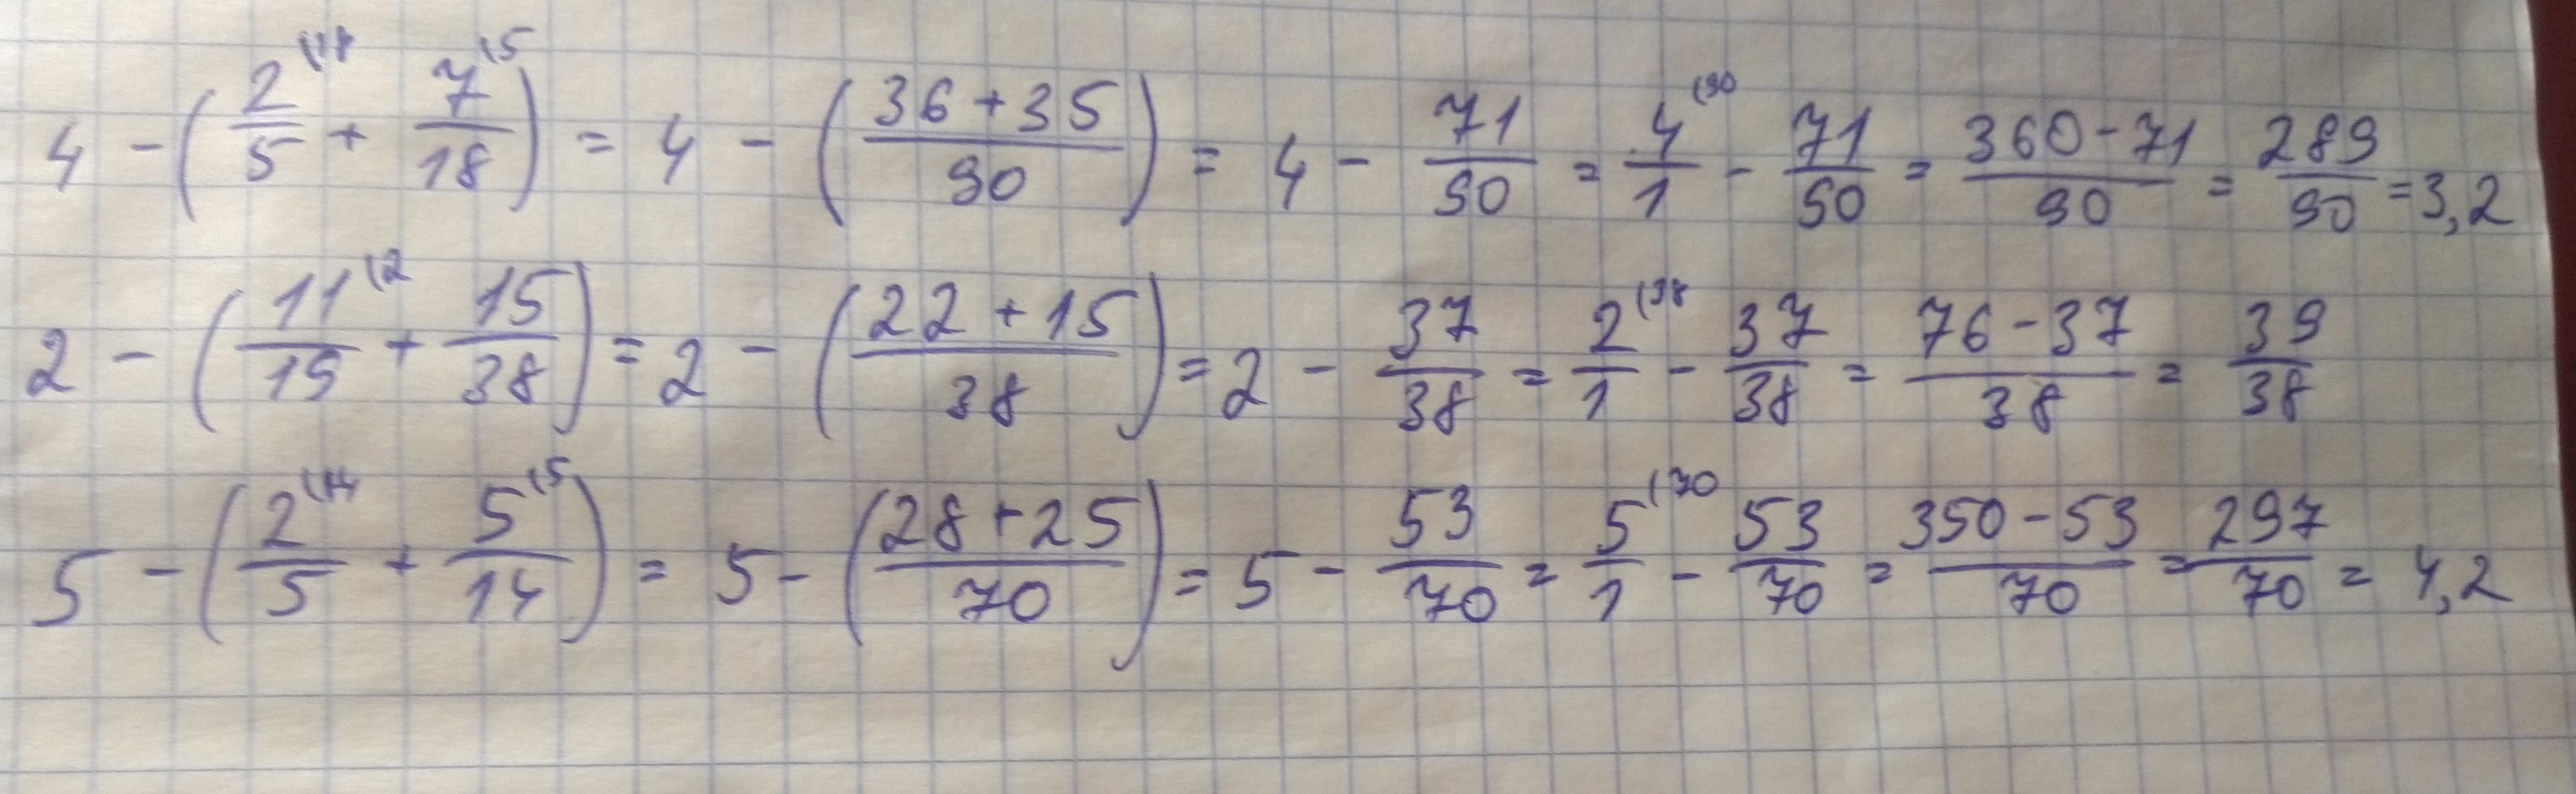 4 - (2/5 \18 + 7/18 \5) = 4 - ((36+35)/90) = 4 - 71/90 = 4/1 \90 - 71/90 = (360-71)/90 = 289/90 = 3,2
2 - (11/19 \2 + 15/38) = 2 - ((22+15)/38) = 2 - 37/38 = 2/1 \38 - 37/38 = (76-37)/38 = 39/38
5 - (2/5 \14 + 5/14 \5) = 5 - ((28+25)/70) = 5 - 53/70 = 5/1 \70 - 53/70 = (350-53)/70 = 297/70 = 4,2